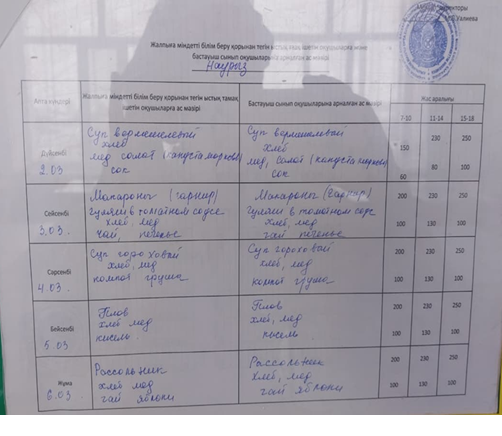 Жалпыға міндетті білім беру қорынан тегін ыстық тамақ ішетін оқушыларға және
бастауыш сынып оқушыларына арналған ас мәзірі
Наурыз
Апта күндері
Жалпыға міндетті білім беру қорынан тегін ыстық тамақ ішетін оқушыларға ас мәзірі
Бастауыш сынып оқушыларына арналған ас мәзірі
Жас аралығы
7-10 11-14 15-18
Дүйсенбі
2.03
Суп вермишелевый
хлеб
мед салат (капуста морковь)
сок
Суп вермишелевый
хлеб
мед, салат (капуста морковь)
сок
150 230 250
60 80 100
Сейсенбі
3.03.
Макароны (гарнир)
гуляш в томатном соусе
хлеб, мед
чай, печенье
Макароны (гарнир)
гуляш в томатном соусе
хлеб, мед
чай печенье
200 230 250
100 130 100
Сәрсенбі
4.03.
Суп гороховай
хлеб, мед
компот груша
Суп гороховай
хлеб, мед
компот груша
200 230 250
100 130 100
Бейсенбі
5.03
Плов
хлеб мед
кисель.
Плов
хлеб, мед
кисель
200 230 250
100 130 100
Жұма
6.03
Рассольник
хлеб мед
чай яблоки
Рассольник
хлеб, мед
чай яблоки
200 230 250
100 130 100